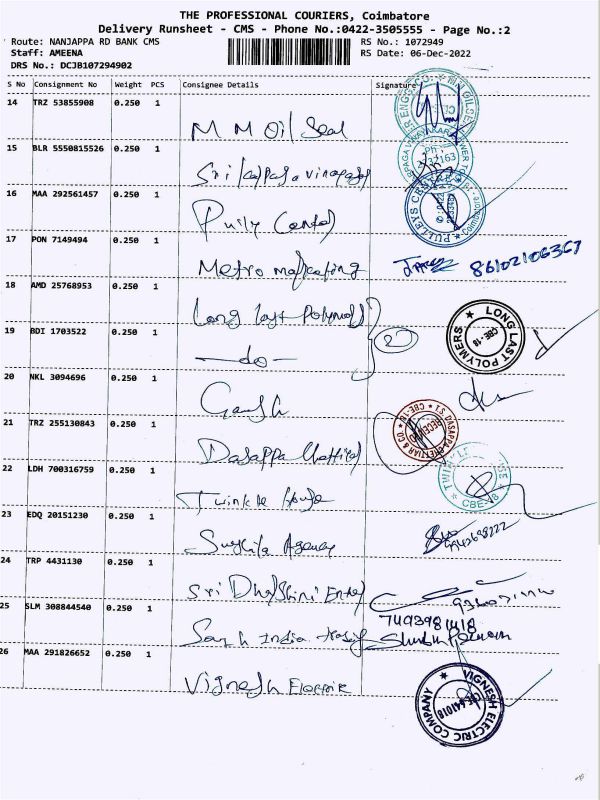 THE PROFESSIONAL COURIERS, Coimbatore
Delivery Runsheet - CMS - Phone No.:0422-3505555 - Page No.:2
Route: NANJAPPA RD BANK CMS
RS No.: 1072949
Staff: AMEENA
RS Date: 06-Dec-2022
DRS No.: DCJB107294902
S No Consignment No Weight PCS Consignee Details Signature
14 TRZ 53855908 0.250 1
M M Oil Seal
15 BLR 5550815526 0.250 1
Sri
16 MAA 292561457 0.250 1
PULLEYS
17 PON 7149494 0.250 1
Metro marketing
18 AMD 25768953 0.250 1
Long last Polymers
LONG LAST POLYMERS
CBE-18
19 BDI 1703522 0.250 1
-do-
2
20 NKL 3094696 0.250 1
Ganesh
21 TRZ 255130843 0.250 1
Dasappa Chettiar
S.T. DASAPPA CHETTIAR & CO
RECEIVED
CBE-18
22 LDH 700316759 0.250 1
Twinkle House
CBE-18
23 EDQ 20151230 0.250 1
Agency
24 TRP 4431130 0.250 1
Sri
25 SLM 308844540 0.250 1
India
26 MAA 291826652 0.250 1
Vignesh Electric
VIGNESH ELECTRIC COMPANY